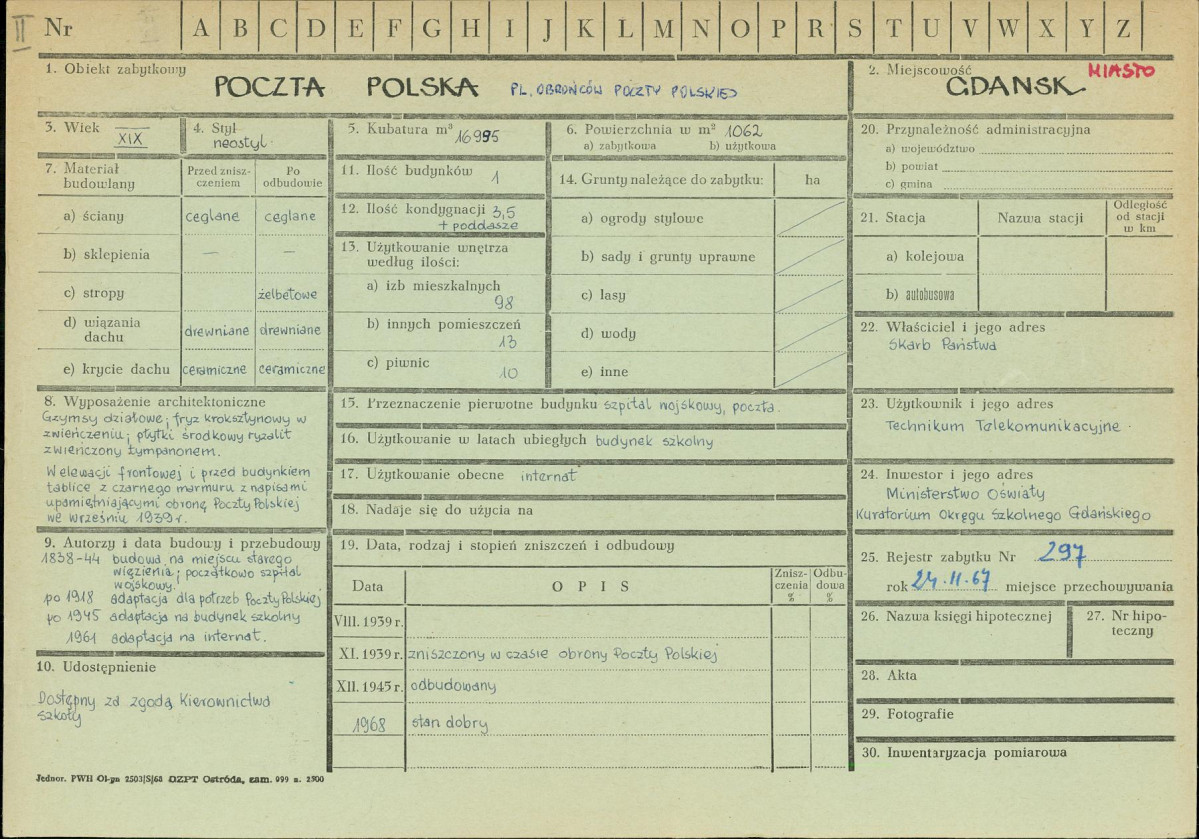 II
Nr A B C D E F G H I J K L M N O P R S T U V W X Y Z
1. Obiekt zabytkowy
POCZTA POLSKA PL. OBROŃCÓW POCZTY POLSKIEJ
2. Miejscowość MIASTO
GDAŃSK
3. Wiek XIX
4. Styl neostyl.
5. Kubatura m³ 16995
6. Powierzchnia w m² 1062
a) zabytkowa b) użytkowa
7. Materiał budowlany
Przed zniszczeniem
Po odbudowie
a) ściany ceglane ceglane
b) sklepienia — —
c) stropy żelbetowe
d) wiązania dachu drewniane drewniane
e) krycie dachu ceramiczne ceramiczne
8. Wyposażenie architektoniczne
Gzymsy działowe; fryz kroksztynowy w
zwieńczeniu; płytki środkowy ryzalit
zwieńczony tympanonem.
W elewacji frontowej i przed budynkiem
tablice z czarnego marmuru z napisami
upamiętniającymi obronę Poczty Polskiej
we wrześniu 1939 r.
9. Autorzy i data budowy i przebudowy
1838-44 budowa na miejscu starego
więzienia; początkowo szpital
wojskowy.
po 1918 adaptacja dla potrzeb Poczty Polskiej
po 1945 adaptacja na budynek szkolny
1961 adaptacja na internat.
10. Udostępnienie
Dostępny za zgodą Kierownictwa
szkoły
11. Ilość budynków 1
12. Ilość kondygnacji 3,5
+ poddasze
13. Użytkowanie wnętrza
według ilości:
a) izb mieszkalnych
98
b) innych pomieszczeń
13
c) piwnic
10
14. Grunty należące do zabytku: ha
a) ogrody stylowe
b) sady i grunty uprawne
c) lasy
d) wody
e) inne
15. Przeznaczenie pierwotne budynku szpital wojskowy, poczta.
16. Użytkowanie w latach ubiegłych budynek szkolny
17. Użytkowanie obecne internat
18. Nadaje się do użycia na
19. Data, rodzaj i stopień zniszczeń i odbudowy
Data OPIS Zniszczenia % Odbudowa %
VIII. 1939 r.
XI. 1939 r. zniszczony w czasie obrony Poczty Polskiej
XII. 1945 r. odbudowany
1968 stan dobry
20. Przynależność administracyjna
a) województwo
b) powiat
c) gmina
21. Stacja Nazwa stacji Odległość od stacji w km
a) kolejowa
b) autobusowa
22. Właściciel i jego adres
Skarb Państwa
23. Użytkownik i jego adres
Technikum Telekomunikacyjne.
24. Inwestor i jego adres
Ministerstwo Oświaty
Kuratorium Okręgu Szkolnego Gdańskiego
25. Rejestr zabytku Nr 297
rok 24.II.67 miejsce przechowywania
26. Nazwa księgi hipotecznej
27. Nr hipoteczny
28. Akta
29. Fotografie
30. Inwentaryzacja pomiarowa
Jednor. PWH Ol-gn 2503/S/68 OZPT Ostróda, zam. 999 n. 2500